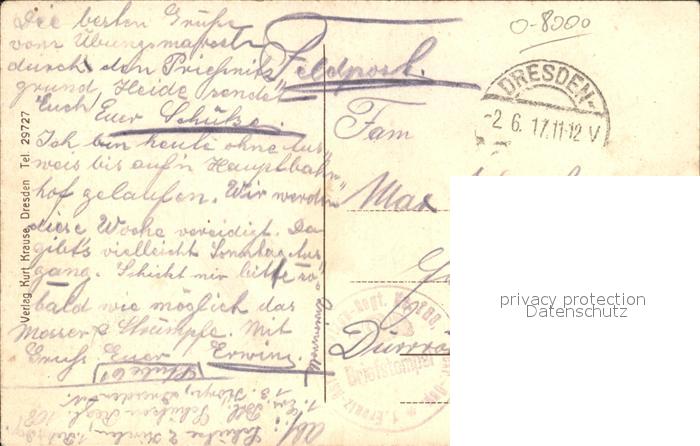 Die besten Grüße
vom Übungsmarsch
durch den Prießnitz
grund, Heide sendet
Euch Euer Schütze.
Ich bin heute ohne Aus
weis bis auf'n Hauptbahn
hof gelaufen. Wir werden
diese Woche vereidigt. Da
gibt's vielleicht Sonntag Aus
gang. Schickt mir bitte so
bald wie möglich das
Messer & Strümpfe. Mit
Gruß Euer Erwin.
Verlag Kurt Krause, Dresden Tel. 29727
Feldpost.
0-8000
DRESDEN-
-2 6. 17.11-12 V
Fam
Max
Dürrrö
Briefstempel
privacy protection
Datenschutz